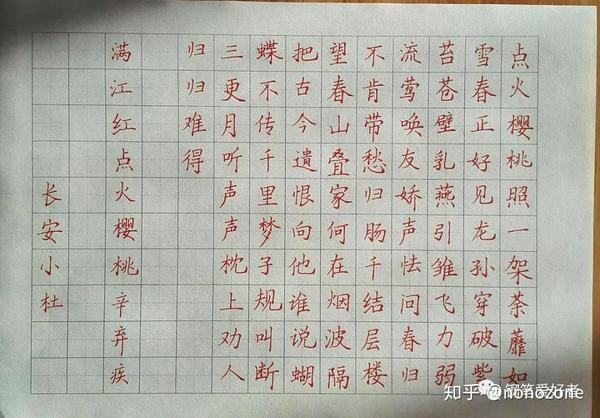 点火樱桃照一架荼蘼如
雪春正好见龙孙穿破紫
苔苍壁乳燕引雏飞力弱
流莺唤友娇声怯问春归
不肯带愁归肠千结层楼
望春山叠家何在烟波隔
把古今遗恨向他谁说蝴
蝶不传千里梦子规叫断
三更月听声声枕上劝人
归归难得
满江红点火樱桃辛弃疾
长安小杜
钢笔爱好者
知乎 @nonozone